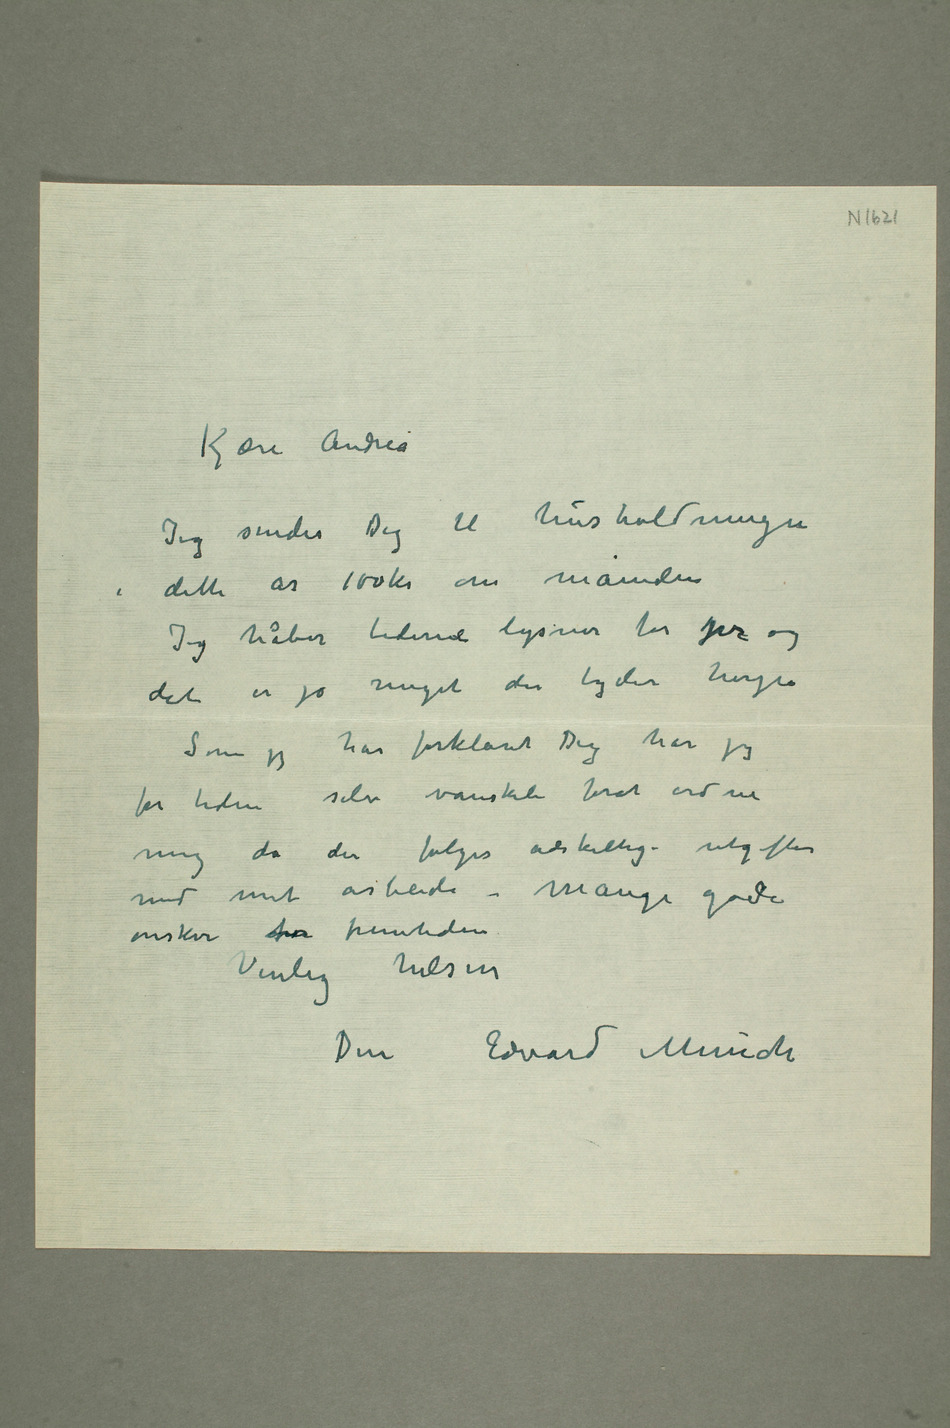 N1621
Kjære Andrea
Jeg sender Dig til husholdningen
i dette år 100 kr om måneden
Jeg håber tiderne lysner for og
det er jo meget der tyder herpå
Som jeg har forklaret Dig har jeg
for tiden selv vanskeli forat ordne
mig da der følges adskellig utgifter
med mit arbeide – Mange gode
ønsker for fremtiden
Venlig hilsen
Din Edvard Munch